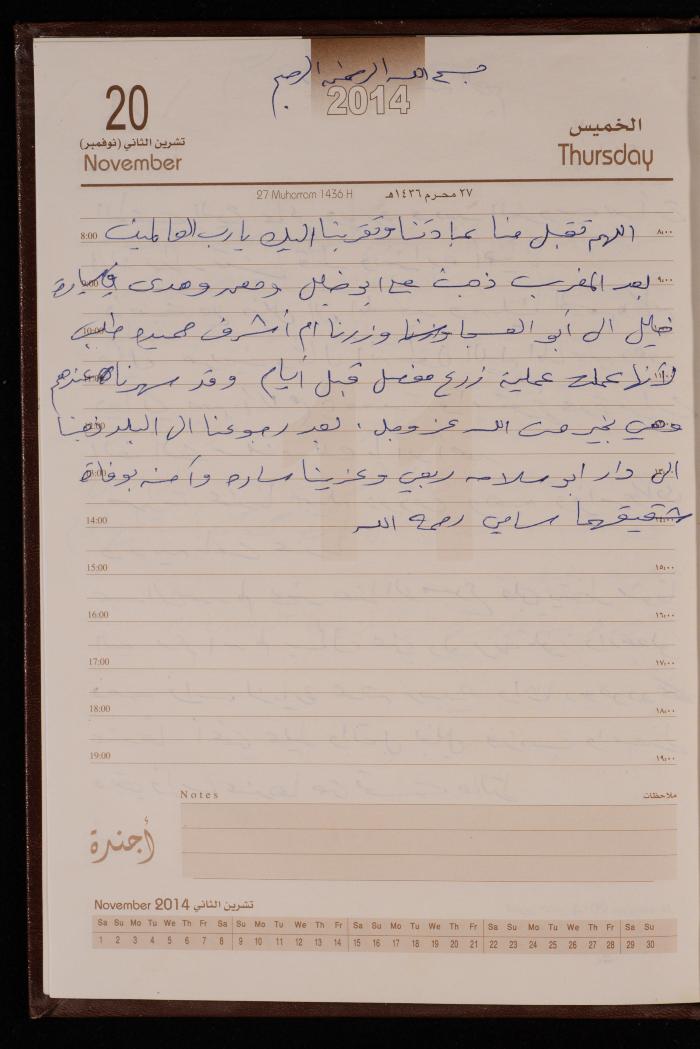 بسم الله الرحمن الرحيم
2014
20
تشرين الثاني (نوفمبر)
November
الخميس
Thursday
27 Muharram 1436 H
٢٧ محرم ١٤٣٦هـ
8:00 اللهم تقبل منا عبادتنا وتقربنا اليك يارب العالمين ٨:٠٠
بعد المغرب ذهبت مع ابو خليل ومعه وهدى في سيارة ٩:٠٠
خليل الى أبو العسجا وزرنا ام أشرف
لأنها عملت عملية زرع مفصل قبل أيام وقد سهرنا عندهم
وهي بخير من الله عز وجل، بعد رجوعنا الى البلد ذهبنا
الى دار ابو سلامه ربعي وعزينا ساره وآمنه بوفاة
14:00 شقيقهما سامي رحمه الله
15:00 ١٥:٠٠
16:00 ١٦:٠٠
17:00 ١٧:٠٠
18:00 ١٨:٠٠
19:00 ١٩:٠٠
Notes ملاحظات
أجندة
November 2014 تشرين الثاني
Sa Su Mo Tu We Th Fr Sa Su Mo Tu We Th Fr Sa Su Mo Tu We Th Fr Sa Su Mo Tu We Th Fr Sa Su
1 2 3 4 5 6 7 8 9 10 11 12 13 14 15 16 17 18 19 20 21 22 23 24 25 26 27 28 29 30